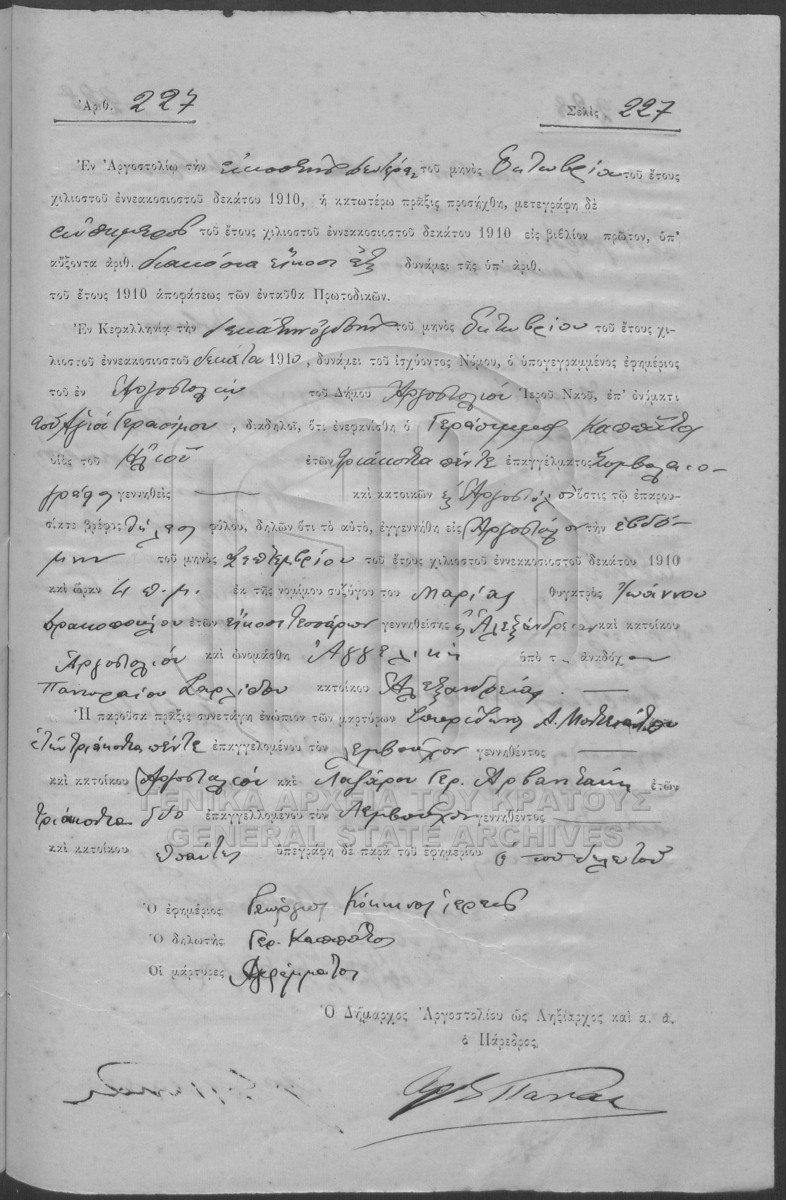 Ἀριθ. 227 Σελὶς 227
Ἐν Ἀργοστολίῳ τὴν εἰκοστὴν δευτέραν τοῦ μηνὸς Ὀκτωβρίου τοῦ ἔτους
χιλιοστοῦ ἐννεακοσιοστοῦ δεκάτου 1910, ἡ κατωτέρω πρᾶξις προσήχθη, μετεγράφη δὲ
αὐθημερὸν τοῦ ἔτους χιλιοστοῦ ἐννεακοσιοστοῦ δεκάτου 1910 εἰς βιβλίον πρῶτον, ὑπ'
αὔξοντα ἀριθ. διακόσια εἴκοσι ἑξ δυνάμει τῆς ὑπ' ἀριθ.
τοῦ ἔτους 1910 ἀποφάσεως τῶν ἐνταῦθα Πρωτοδικῶν.
Ἐν Κεφαλληνίᾳ τὴν δεκάτην ὀγδόην τοῦ μηνὸς Ὀκτωβρίου τοῦ ἔτους χι-
λιοστοῦ ἐννεακοσιοστοῦ δεκάτου 1910, δυνάμει τοῦ ἰσχύοντος Νόμου, ὁ ὑπογεγραμμένος ἐφημέριος
τοῦ ἐν Ἀργοστολίῳ τοῦ Δήμου Ἀργοστολίου Ἱεροῦ Ναοῦ, ἐπ' ὀνόματι
τοῦ Ἁγίου Γερασίμου, διαδηλοῖ, ὅτι ἐνεφανίσθη ὁ Γεράσιμος Καππάτος
υἱὸς τοῦ Ἠλιοῦ ἐτῶν τριάκοντα πέντε ἐπαγγέλματος Συμβολαιο-
γράφος γεννηθεὶς — καὶ κατοικῶν ἐν Ἀργοστολ ὅστις τῷ ἐπαρου-
σίασε βρέφος θήλεος φύλου, δηλῶν ὅτι τὸ αὐτὸ, ἐγεννήθη εἰς Ἀργοστόλιον τὴν ἑβδό-
μην τοῦ μηνὸς Σεπτεμβρίου τοῦ ἔτους χιλιοστοῦ ἐννεακοσιοστοῦ δεκάτου 1910
καὶ ὥραν 4 π.μ. ἐκ τῆς νομίμου συζύγου του Μαρίας θυγατρὸς Ἰωάννου
Δρακοπούλου ἐτῶν εἴκοσι τεσσάρων γεννηθείσης ἐν Ἀλεξάνδρειαν καὶ κατοίκου
Ἀργοστολίου καὶ ὠνομάσθη Ἀγγελικὴ ὑπὸ τ ἀναδόχου
κατοίκου Ἀλεξανδρείας. —
Ἡ παροῦσα πρᾶξις συνετάγη ἐνώπιον τῶν μαρτύρων Σπυρίδωνος Α.
ἐτῶν τριάκοντα πέντε ἐπαγγελομένου τὸν λεμβοῦχον γεννηθέντος —
καὶ κατοίκου Ἀργοστολίου καὶ Γερ. Ἀρβανιτάκη ἐτῶν
τριάκοντα δύο ἐπαγγελλομένου τὸν Λεμβοῦχον γεννηθέντος —
καὶ κατοίκου ὑπεγράφη δὲ παρὰ τοῦ ἐφημερίου
Ὁ ἐφημέριος Γεώργιος Κόκκινος ἱερεὺς
Ὁ δηλωτὴς Γερ. Καππάτος
Οἱ μάρτυρες Ἀγράμματοι
Ὁ Δήμαρχος Ἀργοστολίου ὡς Ληξίαρχος καὶ α. α.
ὁ Πάρεδρος
ΓΕΝΙΚΑ ΑΡΧΕΙΑ ΤΟΥ ΚΡΑΤΟΥΣ
GENERAL STATE ARCHIVES